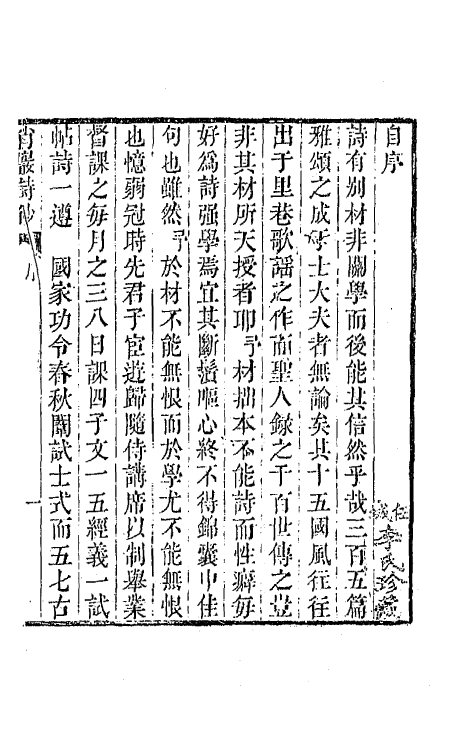 自序
詩有別材非關學而後能其信然乎哉三百五篇
雅頌之成于士大夫者無論矣其十五國風往往
出于里巷歌謠之作而聖人錄之千百世傳之豈
非其材所天授者耶予材拙本不能詩而性癖每
好為詩强學焉宜其斷鬚嘔心終不得錦囊中佳
句也雖然予於材不能無恨而於學尤不能無恨
也憶弱冠時先君子宦遊歸隨侍講席以制舉業
督課之每月之三八日課四子文一五經義一試
帖詩一遵 國家功令春秋闈試士式而五七古
岩詩鈔 序 一
李氏珍藏